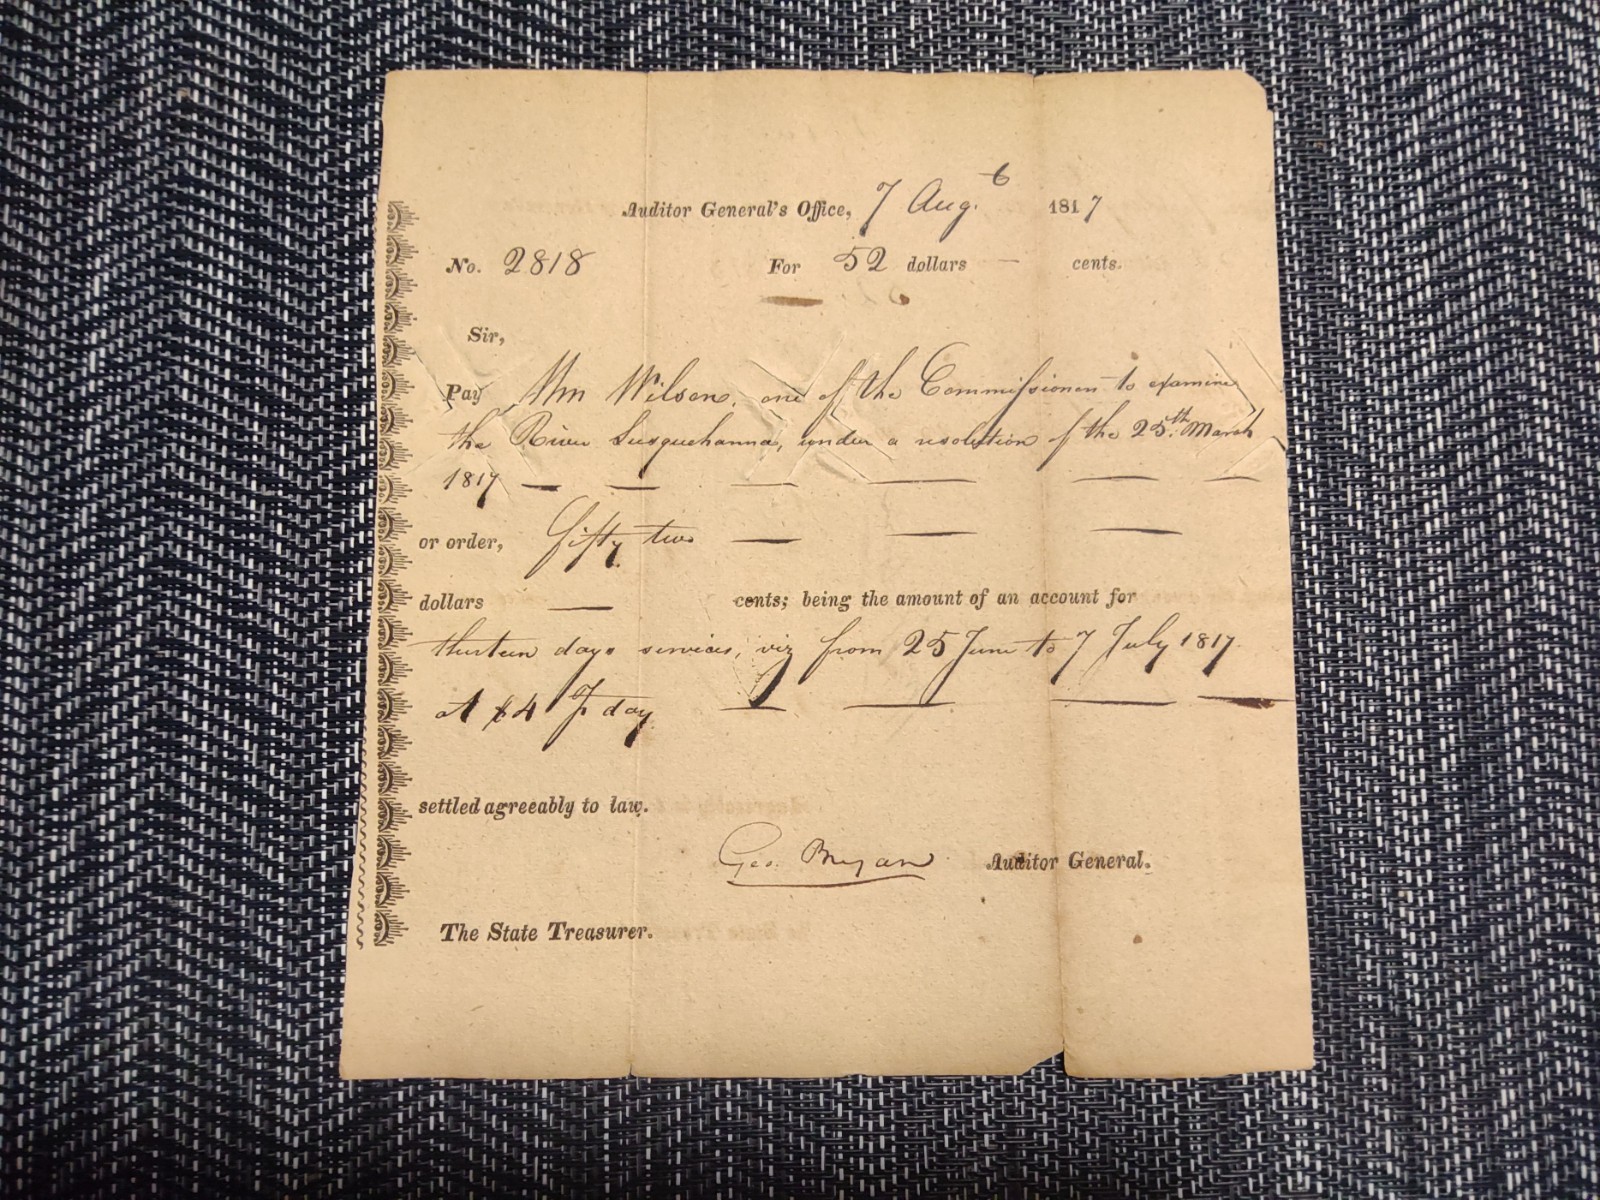 Auditor General's Office, 7 Aug. 6 1817
No. 2818 For 52 dollars — cents.
Sir,
Pay Wm Wilson, one of the Commissioners to examine
the River Susquehanna, under a resolution of the 25th March
1817 — — — — — —
or order, fifty two — — —
dollars — cents; being the amount of an account for
thirteen days services, viz from 25 June to 7 July 1817
at $4 P day — — — —
settled agreeably to law.
Geo. Bryan Auditor General.
The State Treasurer.